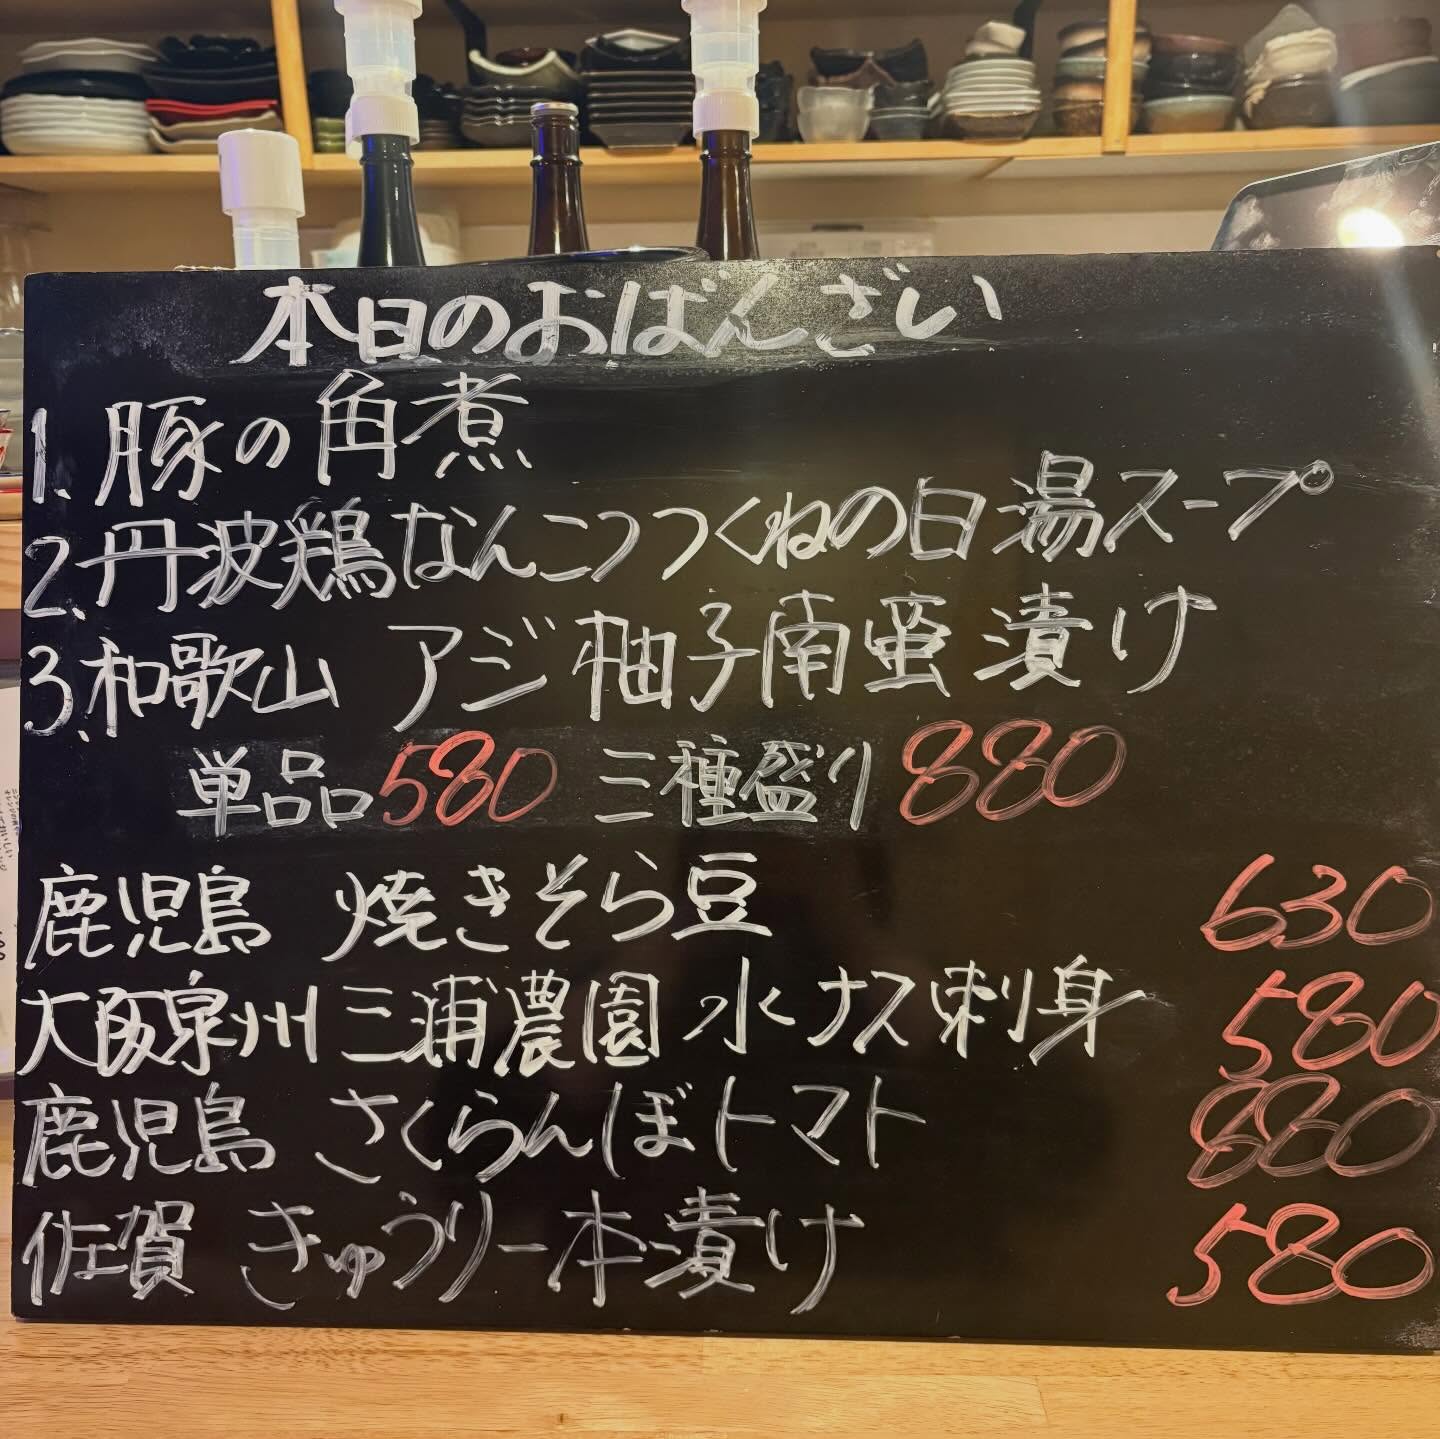 本日のおばんざい
1.豚の角煮
2.丹波鶏なんこつつくねの白湯スープ
3.和歌山 アジ柚子南蛮漬け
単品580 三種盛り880
鹿児島 焼きそら豆 630
大阪泉州三浦農園 水ナス刺身 580
鹿児島 さくらんぼトマト 880
佐賀 きゅうり一本漬け 580